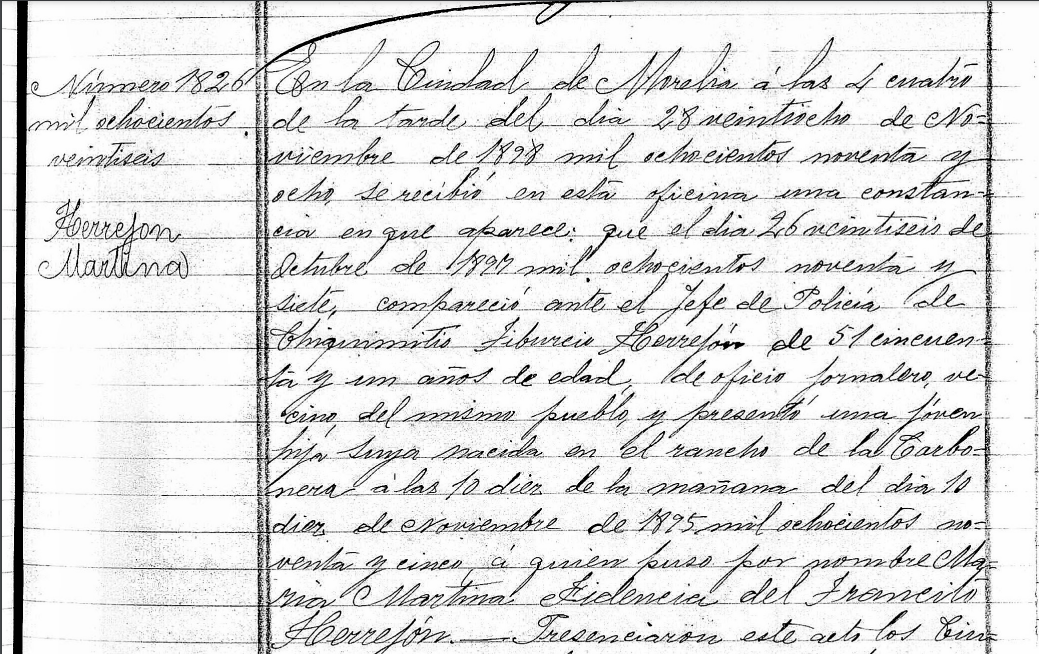 Número 1826
mil ochocientos
veintiseis
Herrejon
Martina
En la Ciudad de Morelia á las 4 cuatro
de la tarde del dia 28 veintiocho de No=
viembre de 1898 mil ochocientos noventa y
ocho, se recibió en esta oficina una constan=
cia en que aparece: que el dia 26 veintiseis de
Octubre de 1897 mil ochocientos noventa y
siete, compareció ante el Jefe de Policía de
Chiquimitio Tiburcio Herrejón de 51 cincuen=
ta y un años de edad, de oficio jornalero, ve=
cino del mismo pueblo, y presentó una jóven
hija suya nacida en el rancho de la Carbo=
nera á las 10 diez de la mañana del dia 10
diez de Noviembre de 1895 mil ochocientos no=
venta y cinco, á quien puso por nombre Ma=
ria Martina Fidencia del
Herrejón. — Presenciaron este acto los Ciu=